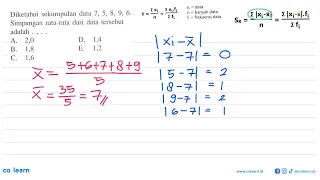 Diketahui sekumpulan data 7, 5, 8, 9, 6.
Simpangan rata-rata dari data tersebut
adalah . . . .
A. 2,0 D. 1,4
B. 1,8 E. 1,2
C. 1,6
x̄ = Σxᵢ/n = Σxᵢ.fᵢ/Σfᵢ
xᵢ = data
n = banyak data
fᵢ = frekuensi data
Sʀ = Σ|xᵢ-x̄|/n = Σ|xᵢ-x̄|.fᵢ/Σfᵢ
x̄ = 5+6+7+8+9/5
x̄ = 35/5 = 7
|xi - x̄|
|7-7| = 0
|5-7| = 2
|8-7| = 1
|9-7| = 2
|6-7| = 1
co learn
www.colearn.id
@colearn.id